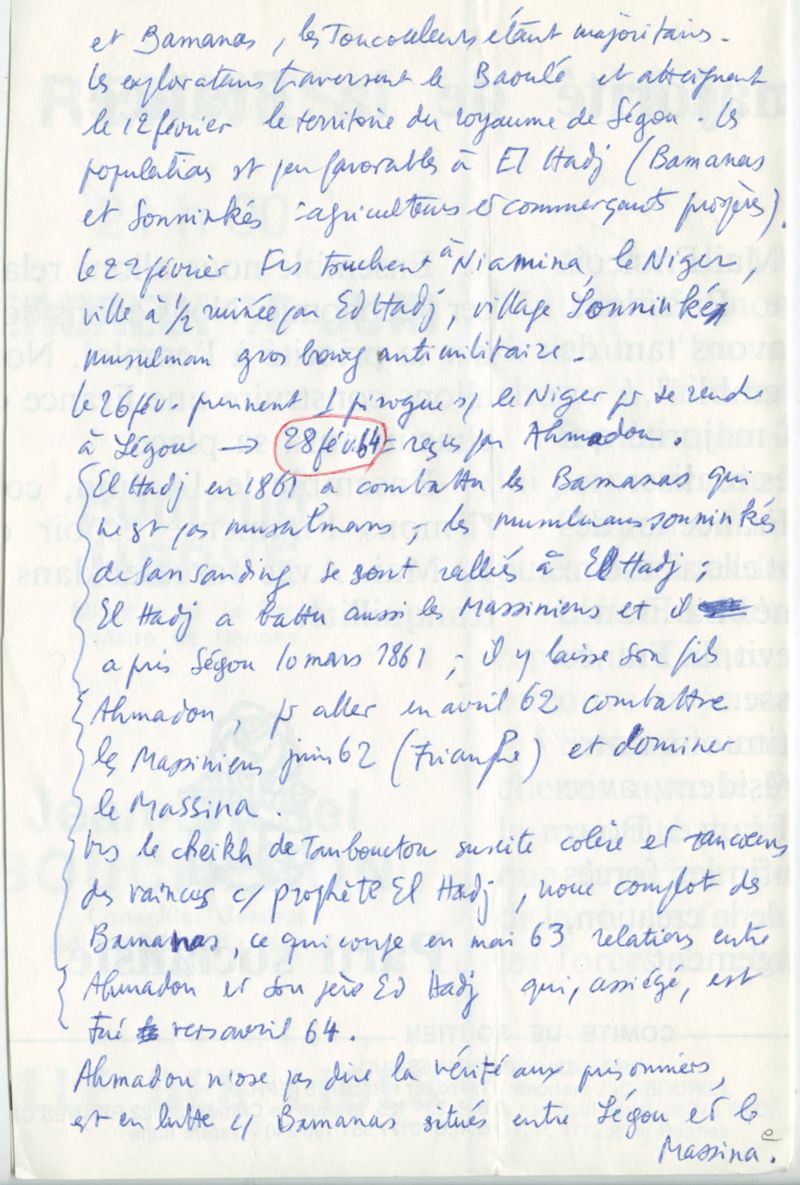 et Bamanas, les Toucouleurs étant majoritaires.
Les explorateurs traversent le Baoulé et atteignent
le 12 février le territoire du royaume de Ségou. Les
populations st peu favorables à El Hadj (Bamanas
et Sonninkés = agriculteurs et commerçants prospères).
Le 22 février Ils touchent à Niamina, le Niger,
ville à 1/2 ruinée par Ed Hadj, village Sonninké
musulman gros bourg antimilitaire.
Le 26 fév. prennent 1 pirogue s/ le Niger pr se rendre
à Ségou → 28 fév. 64 = reçus par Ahmadou.
El Hadj en 1861 a combattu les Bamanas qui
ne st pas musulmans ; les musulmans sonninké
de Sansanding se sont ralliés à El Hadj ;
El Hadj a battu aussi les Massiniens et il
a pris Ségou 10 mars 1861 ; il y laisse son fils
Ahmadou, pr aller en avril 62 combattre
les Massiniens juin 62 (Triomphe) et dominer
le Massina
le cheikh de Tombouctou suscite colère et rancoeurs
des vaincus c/ prophète El Hadj, noue complot des
Bamanas, ce qui coupe en mai 63 relations entre
Ahmadou et son père Ed Hadj qui, assiégé, est
tué vers avril 64.
Ahmadou n'ose pas dire la vérité aux prisonniers,
est en lutte c/ Bamanas situés entre Ségou et le
Massina.